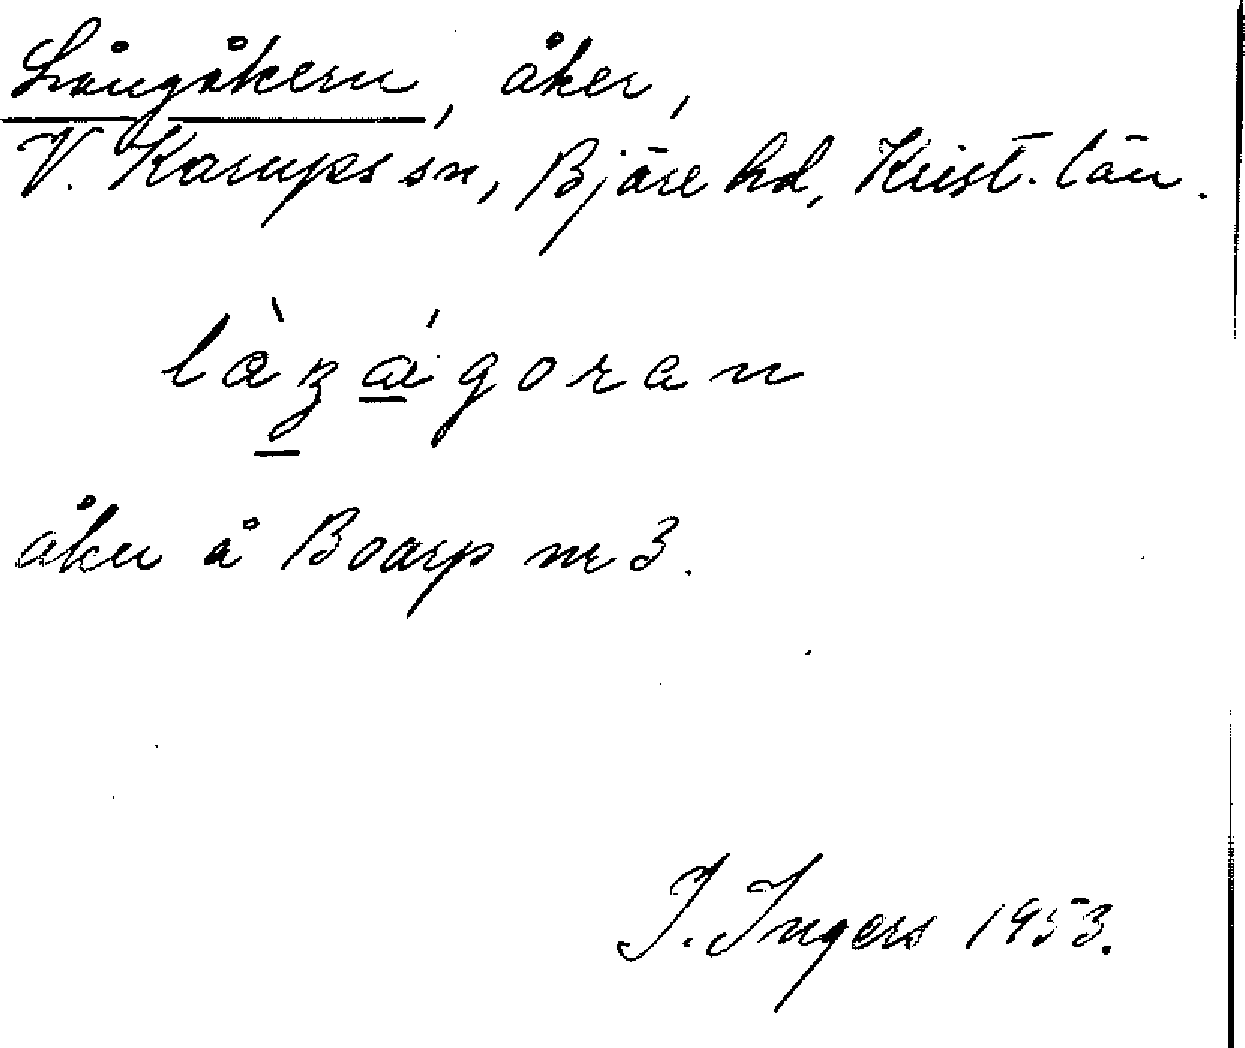 Långåkern, åker,
V. Karups sn, Bjäre hd, Krist. län.
làʒágoran
åker å Boarp nr 3.
I. Ingers 1953.